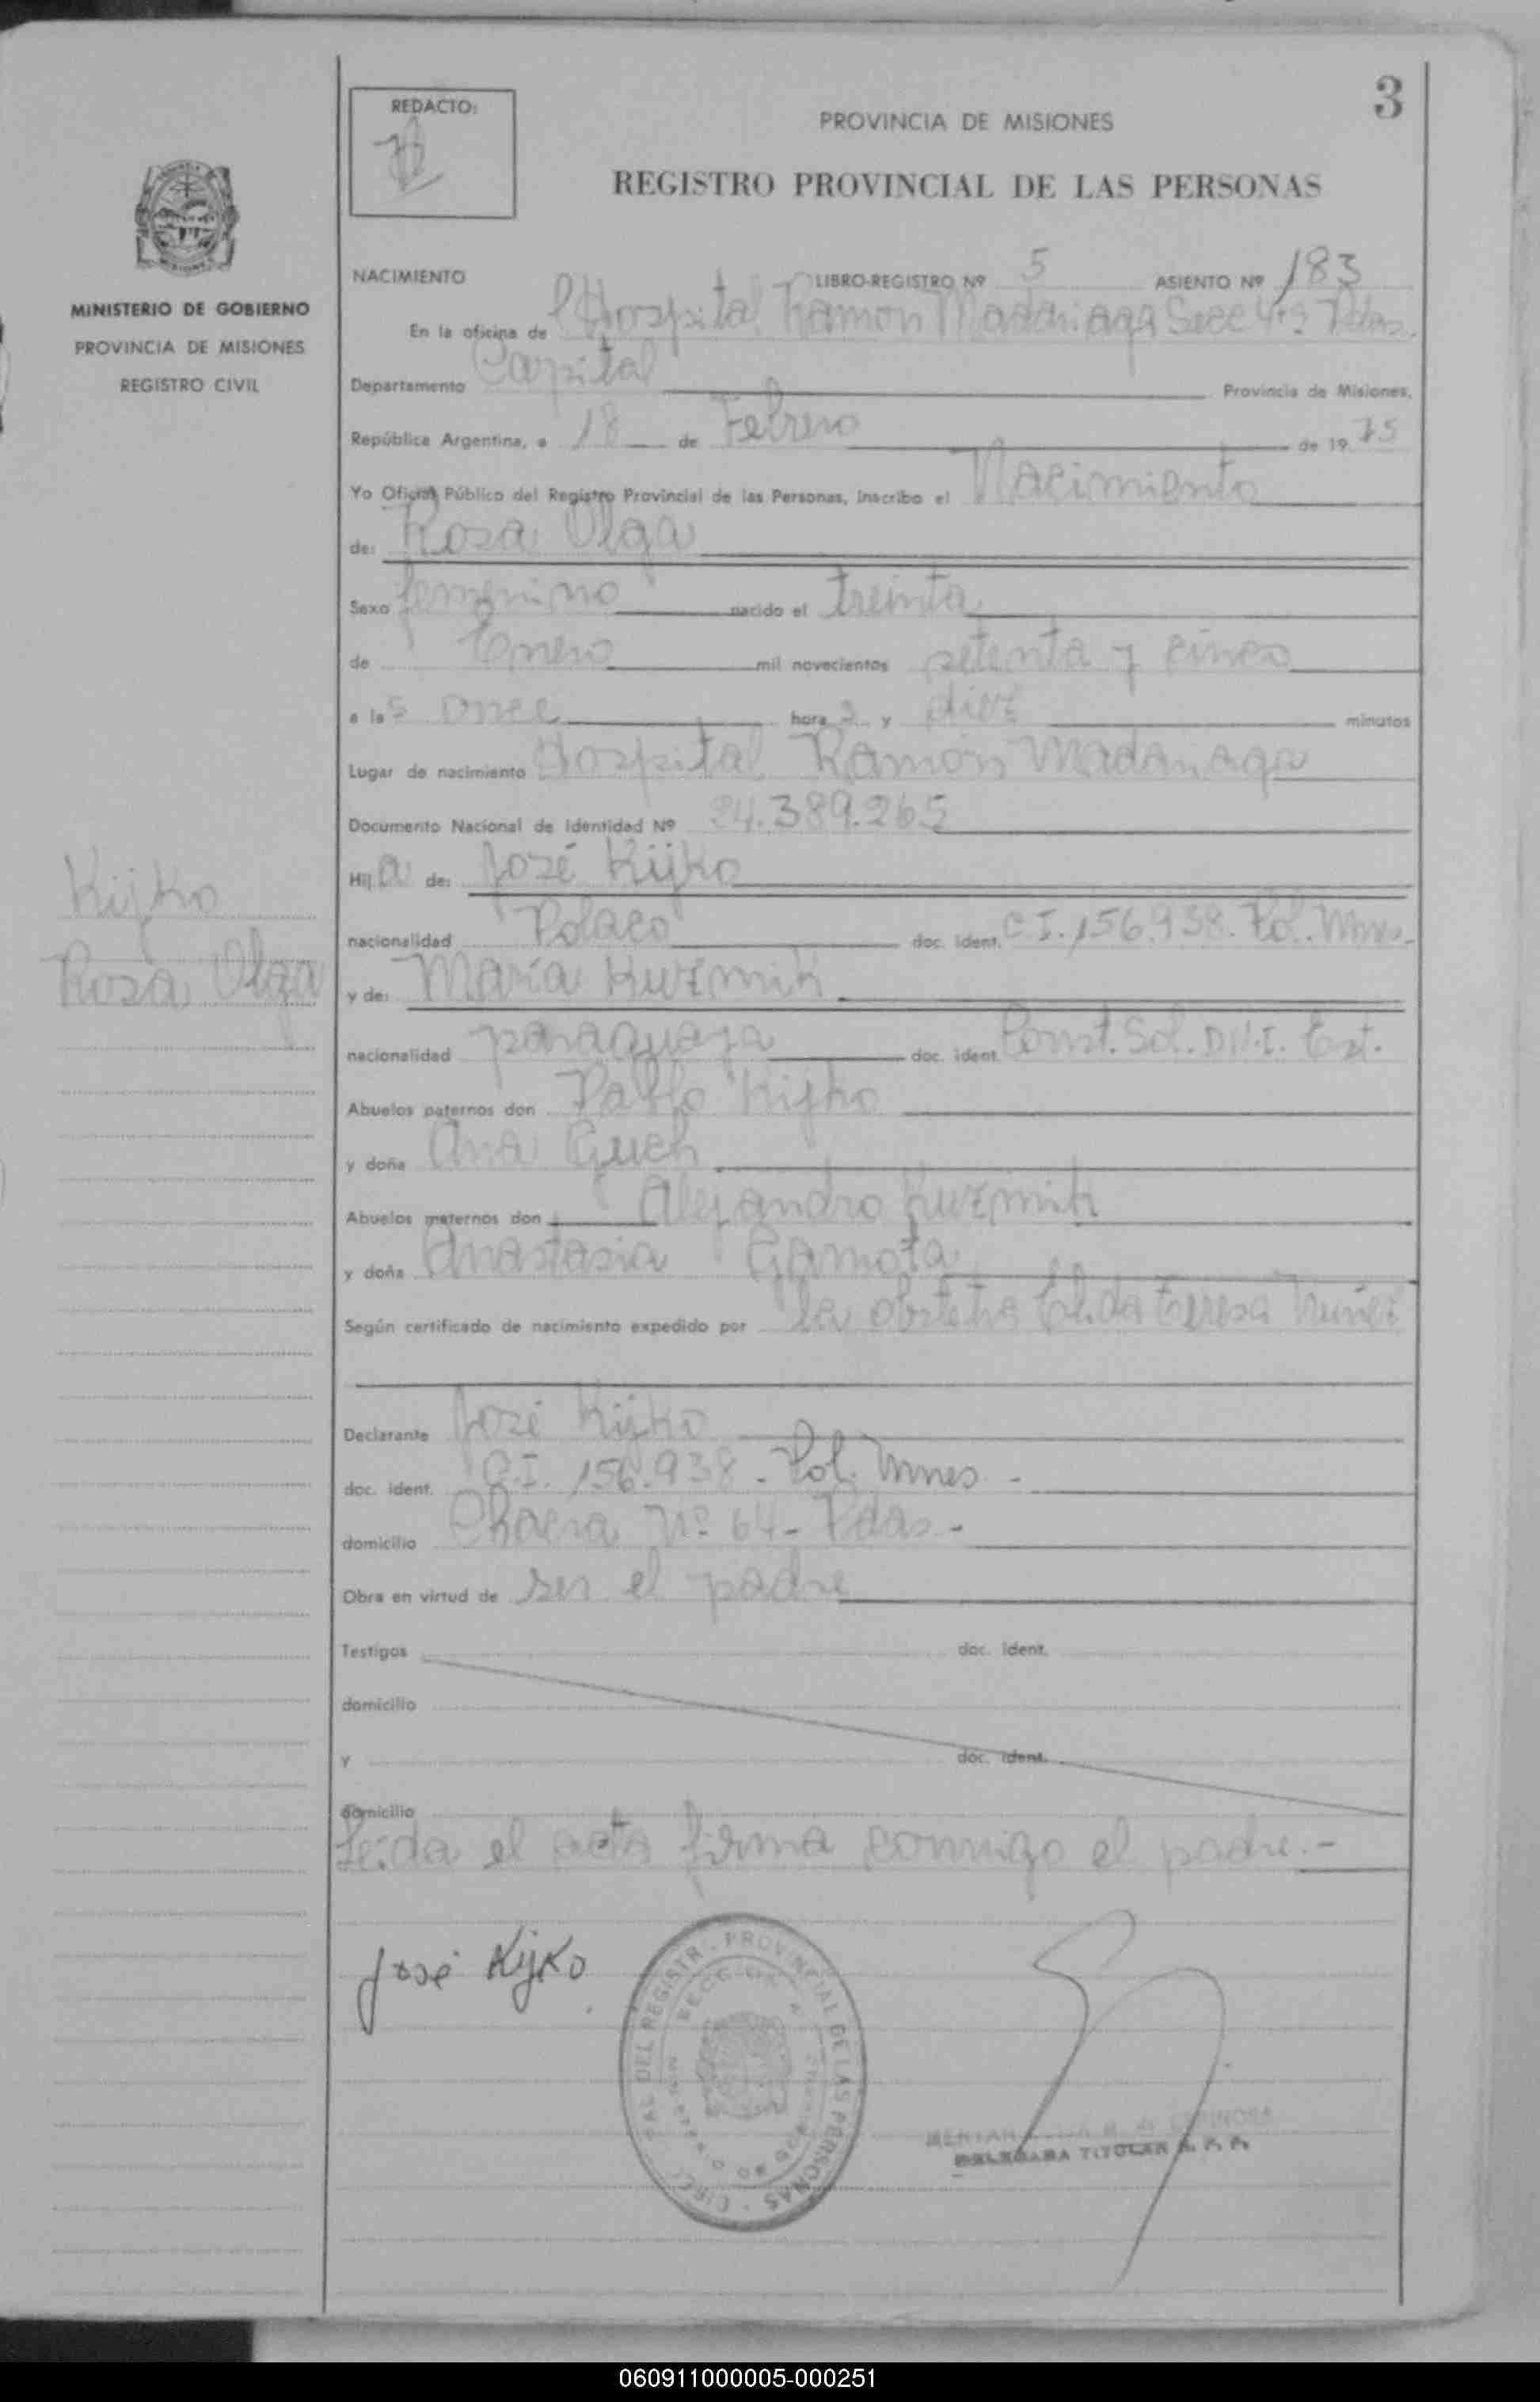 3
REDACTO:
PROVINCIA DE MISIONES
REGISTRO PROVINCIAL DE LAS PERSONAS
MINISTERIO DE GOBIERNO
PROVINCIA DE MISIONES
REGISTRO CIVIL
NACIMIENTO LIBRO-REGISTRO Nº 5 ASIENTO Nº 183
En la oficina de Hospital Ramon Madariaga Secc 4ta Pdas.
Departamento Capital Provincia de Misiones,
República Argentina, a 18 de Febrero de 1975
Yo Oficial Público del Registro Provincial de las Personas, inscribo el Nacimiento
de: Rosa Olga
Sexo femenino nacido el treinta
de Enero mil novecientos setenta y cinco
a las once horas y diez minutos
Lugar de nacimiento Hospital Ramón Madariaga
Documento Nacional de Identidad Nº 24.389.265
Kijko
Rosa Olga
Hija de: José Kijko
nacionalidad Polaco doc. ident. C.I. 156.938. Pol. Mnes.
y de: María Kuzmik
nacionalidad paraguaya doc. ident. Const. Sol. D.N.I. Ext.
Abuelos paternos don Pablo Kijko
y doña Ana Guch
Abuelos maternos don Alejandro Kuzmik
y doña Anastasia Gamota
Según certificado de nacimiento expedido por la obstetra Elida Teresa Nuñez
Declarante José Kijko
doc. ident. C.I. 156.938 - Pol. Mnes -
domicilio Chacra Nº 64 - Pdas -
Obra en virtud de ser el padre
Testigos doc. ident.
domicilio
y doc. ident.
domicilio
Leida el acta firma conmigo el padre.-
José Kijko
DEL REGISTR. PROVINCIAL DE LAS PERSONAS
ESPINOSA
DELEGADA TITULAR
060911000005-000251